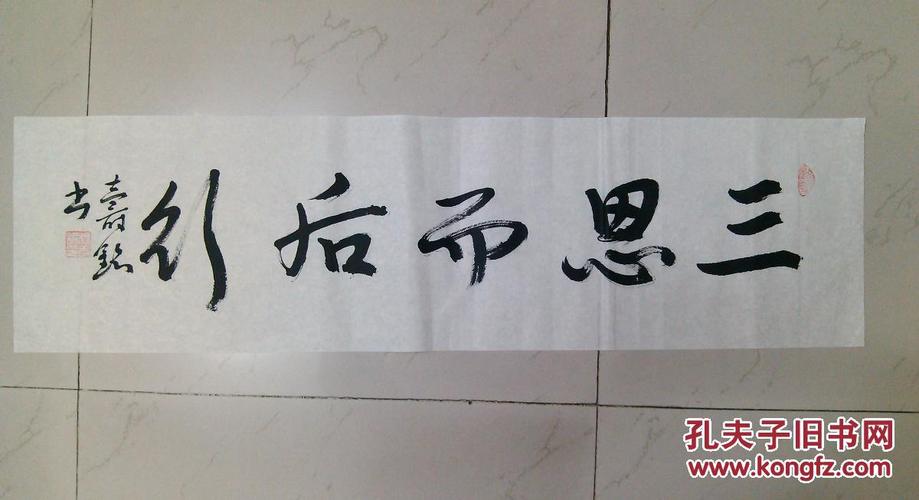 三思而后行
壽銘
书
孔夫子旧书网
www.kongfz.com